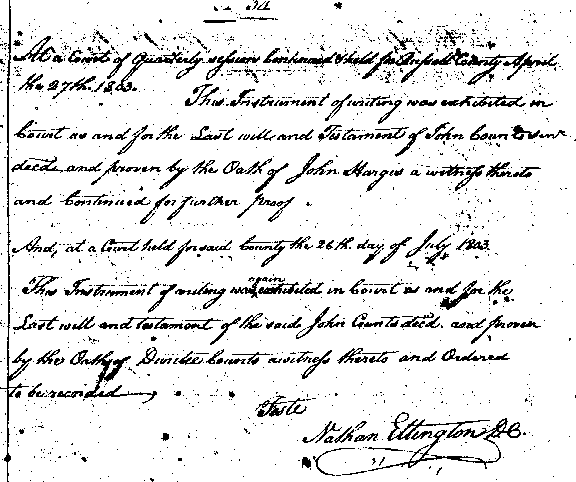 34
At a Court of Quarterly sessions Continued & held for Russell County April
the 27th. 1803.
This Instrument of writing was exhibited in
Court as and for the Last will and Testament of John Counts senr
decd. and proven by the Oath of John Hargis a witness thereto
and Continued for further proof.
And, at a Court held for said County the 26th. day of July 1803
This Instrument of writing was again exhibited in Court as and for the
Last will and testament of the said John Counts decd. and proven
by the Oath of Counts a witness thereto and Ordered
to be recorded
Teste
Nathan Ellington D.C.